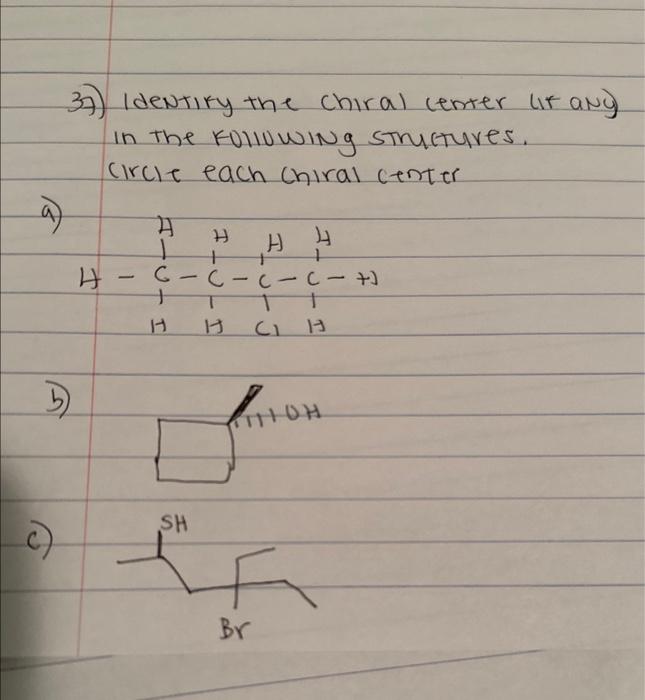 37) Identify the chiral center (if any)
in the following structures.
circle each chiral center
a)
H H H H
H - C - C - C - C - H
H H Cl H
b)
OH
c)
SH
Br